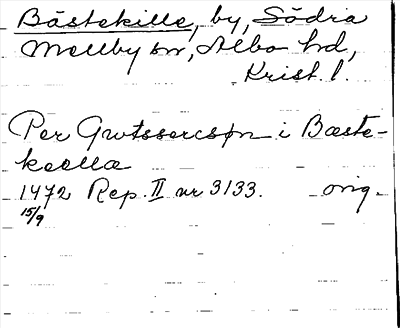 Bästekille, by, Södra
Mellby sn, Albo hd,
Krist. l.
Per Gwtssercsøn i Bæste-
keella
1472 Rep. II nr 3133. orig.
15/9